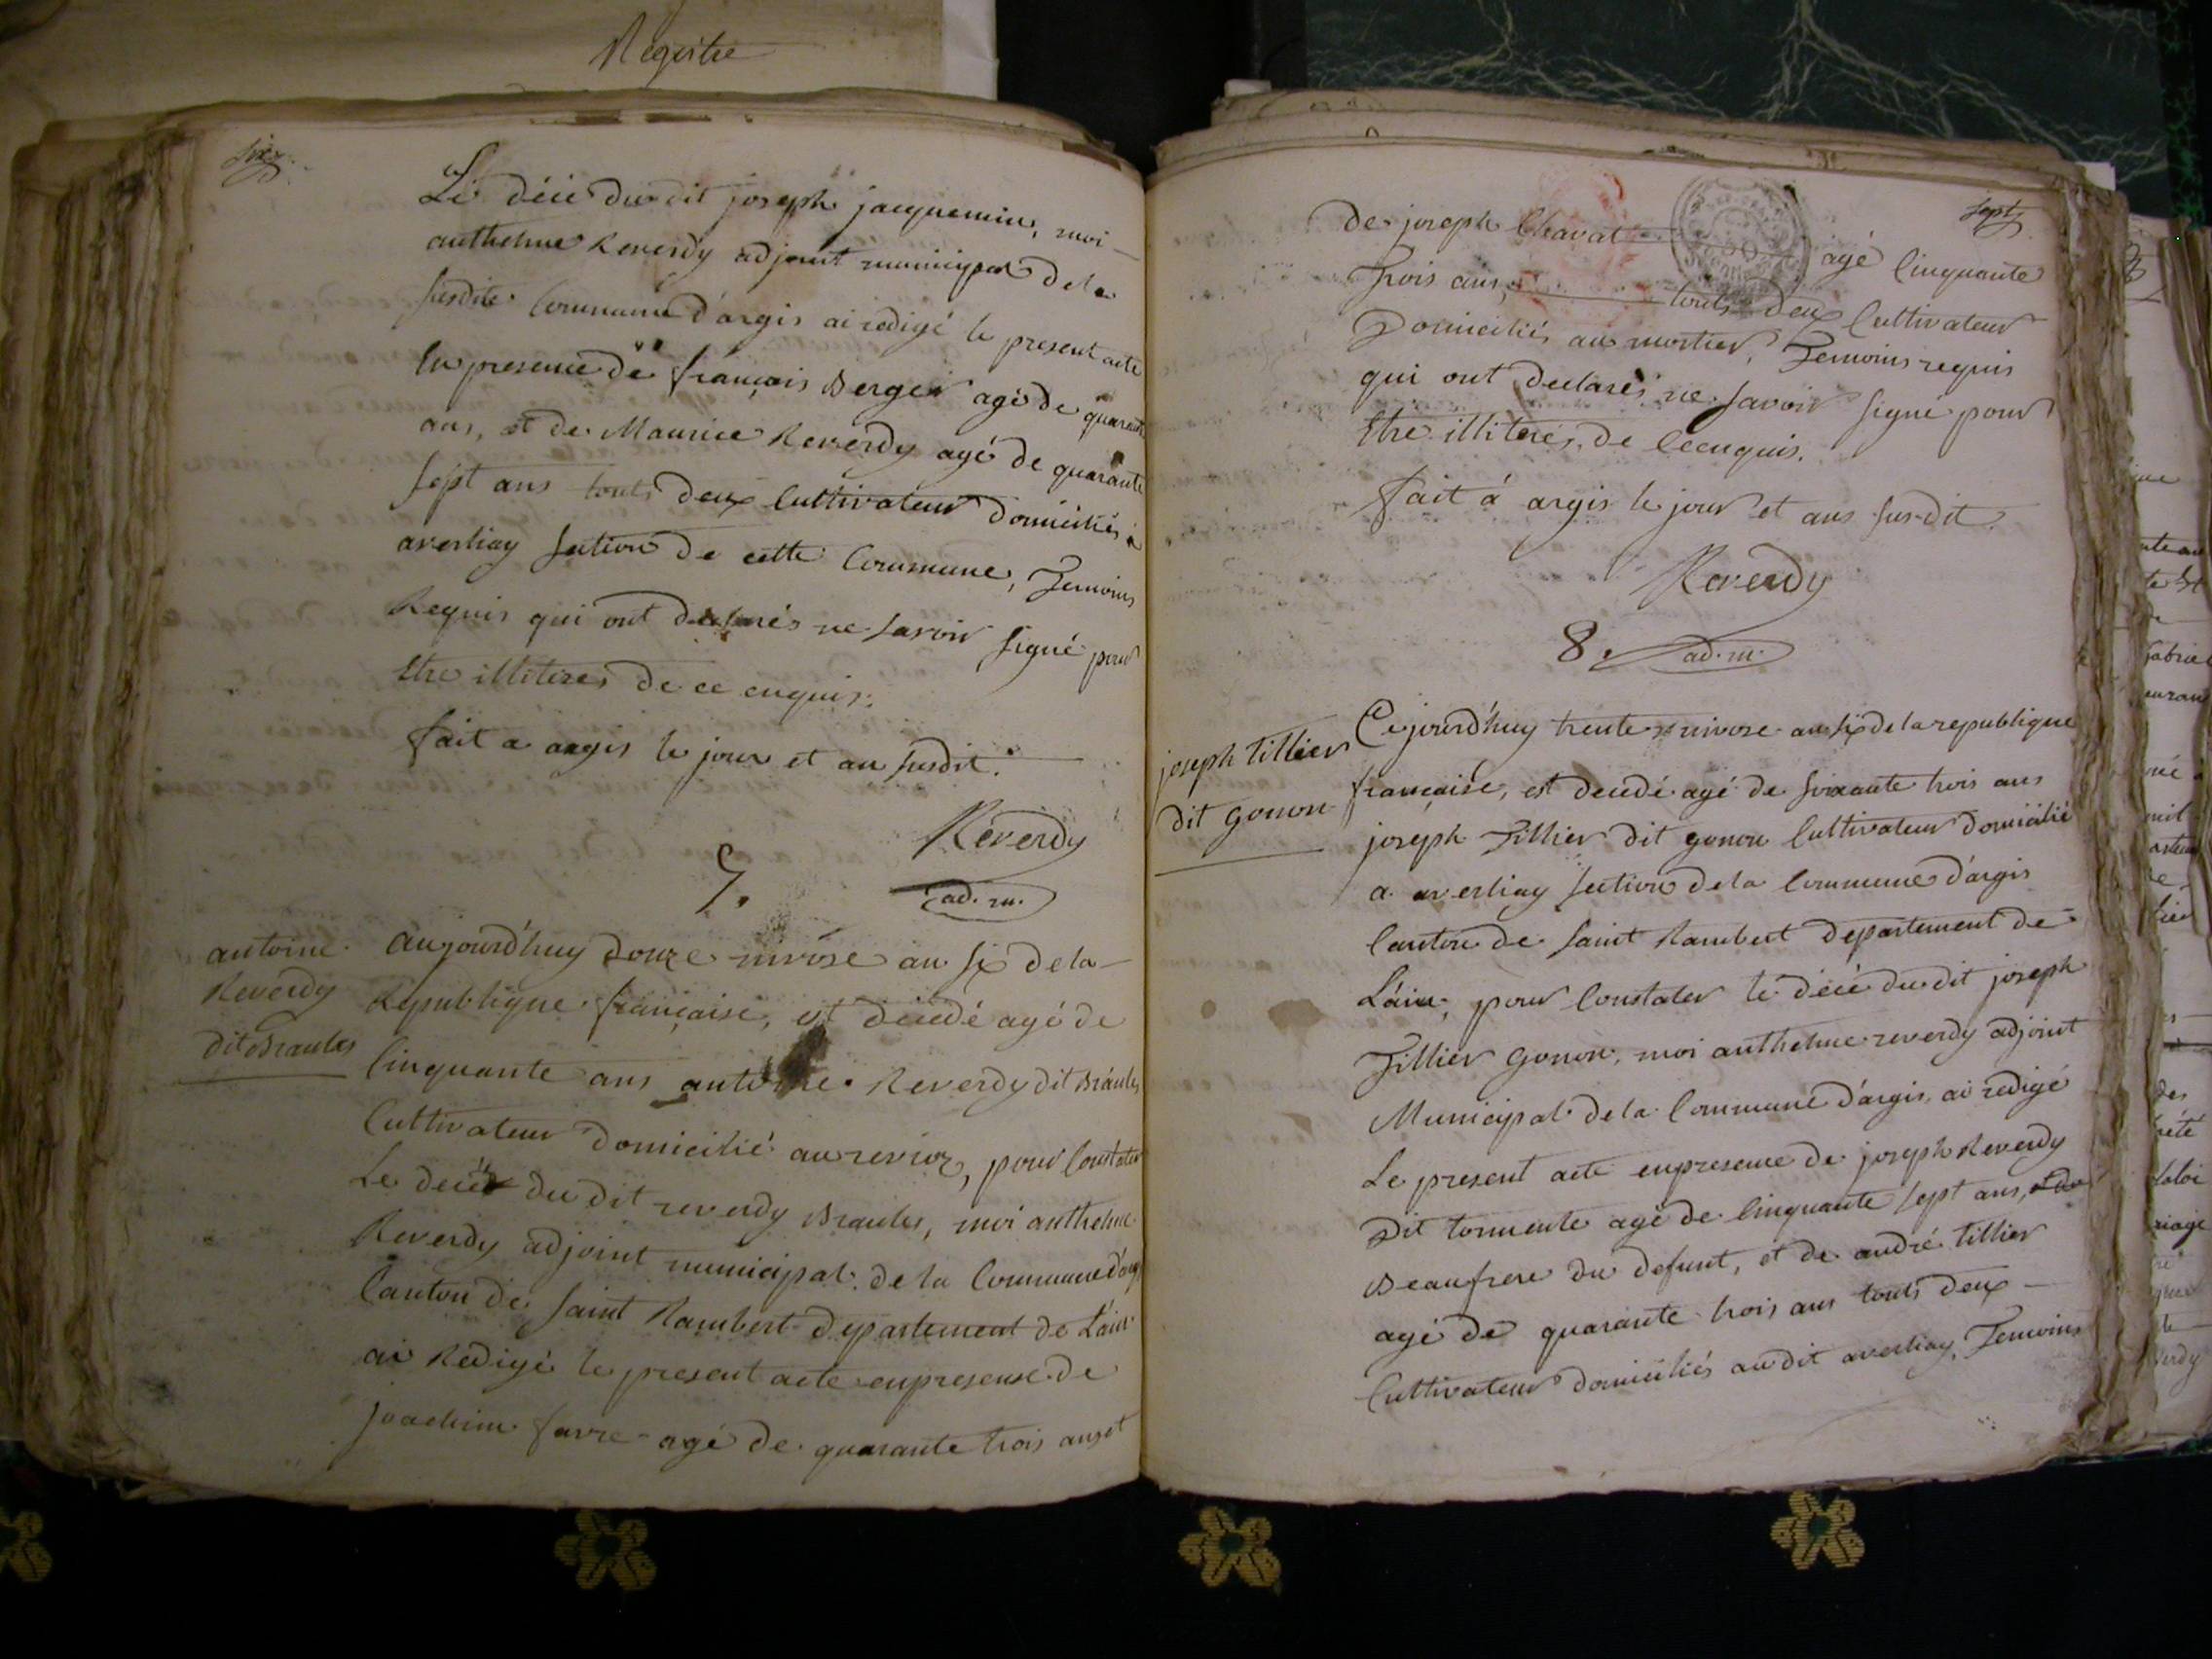 Registre
six
Le décé du dit joseph jacquemin, moi
anthelme Reverdy adjoint municipal de la
susdite Commune d'argis ai redigé le present acte
En presence de françois Berger agé de quarante
ans, et de Maurice Reverdy agé de quarante
sept ans touts deux Cultivateur domiciliés à
averliay section de cette Commune, Temoins
Requis qui ont declarés ne savoir signé pour
Etre illiterés de ce enquis.
fait a argis le jour et an susdit.
Reverdy
7. ad. m.
antoine
Reverdy
dit Braules
aujourd'huy douze nivose an six de la
Republique française, est décédé agé de
Cinquante ans antoine Reverdy dit Braules
Cultivateur domicilié au , pour Constater
Le décé du dit reverdy Braules, moi anthelme
Reverdy adjoint municipal de la Commune d'argis
Canton de saint Rambert departement de L'ain
ai Redigé le present acte en presense de
joachim favre agé de quarante trois ans et
sept
de joseph Chavat agé Cinquante
Trois ans, touts deux Cultivateur
Domiciliés au mortier, Temoins requis
qui ont declarés ne savoir signé pour
Etre illiterés, de Ce enquis.
fait á argis le jour et ans sus dit.
Reverdy
8. ad. m.
joseph tillier
dit gonon
Cejourd'huy trente nivose an six de la republique
française, est décédé agé de soixante trois ans
joseph Tillier dit gonon Cultivateur domicilié
a averliay section de la Commune d'argis
Canton de saint Rambert departement de
L'ain, pour Constater le décé du dit joseph
Tillier gonon, moi anthelme reverdy adjoint
Municipal de la Commune d'argis, ai redigé
Le present acte en presence de joseph Reverdy
Dit tormente agé de Cinquante sept ans,
Beaufrere du defunt, et de andré tillier
agé de quarante trois ans touts deux
Cultivateur domiciliés au dit averliay, Temoins